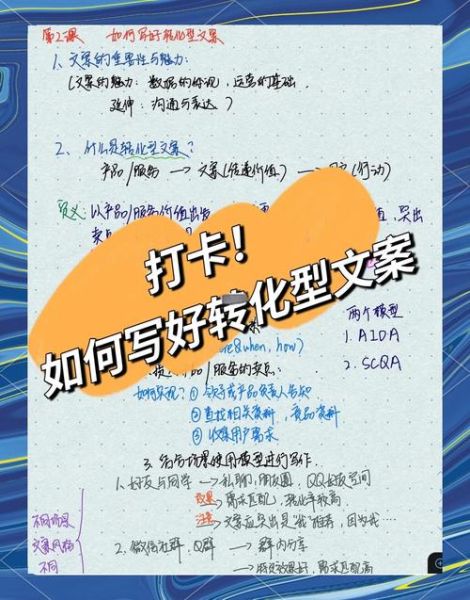 第2课 如何写好转化型文案
1、文案的重要性与魅力:
(文案的魅力: 数据的体现, 运营的基础
延伸: 沟通与表达)
2、什么是转化型文案?
产品/服务 → 文案(传递价值) → (行动)
定义: 以产品/服务价值出发
打卡!
如何写好转化型文案
两个模型
1. AIDA
2. SCQA
&when, how)
/服务的卖点:
如何实现? ① 领导或产品负责人告知
② 查找相关资料, 竞品资料
③ 收集用户需求
3. 结合场景使用模型进行写作
1. 好友与同学 → 私聊, 朋友圈, QQ好友空间
效果 → 需求匹配, 转化率较高
注意 → 文案应突出是"我"推荐, 因为我…
不同场景
文案风格
不同
2. 微信社群, Q群 → 群内分享
需求匹配高